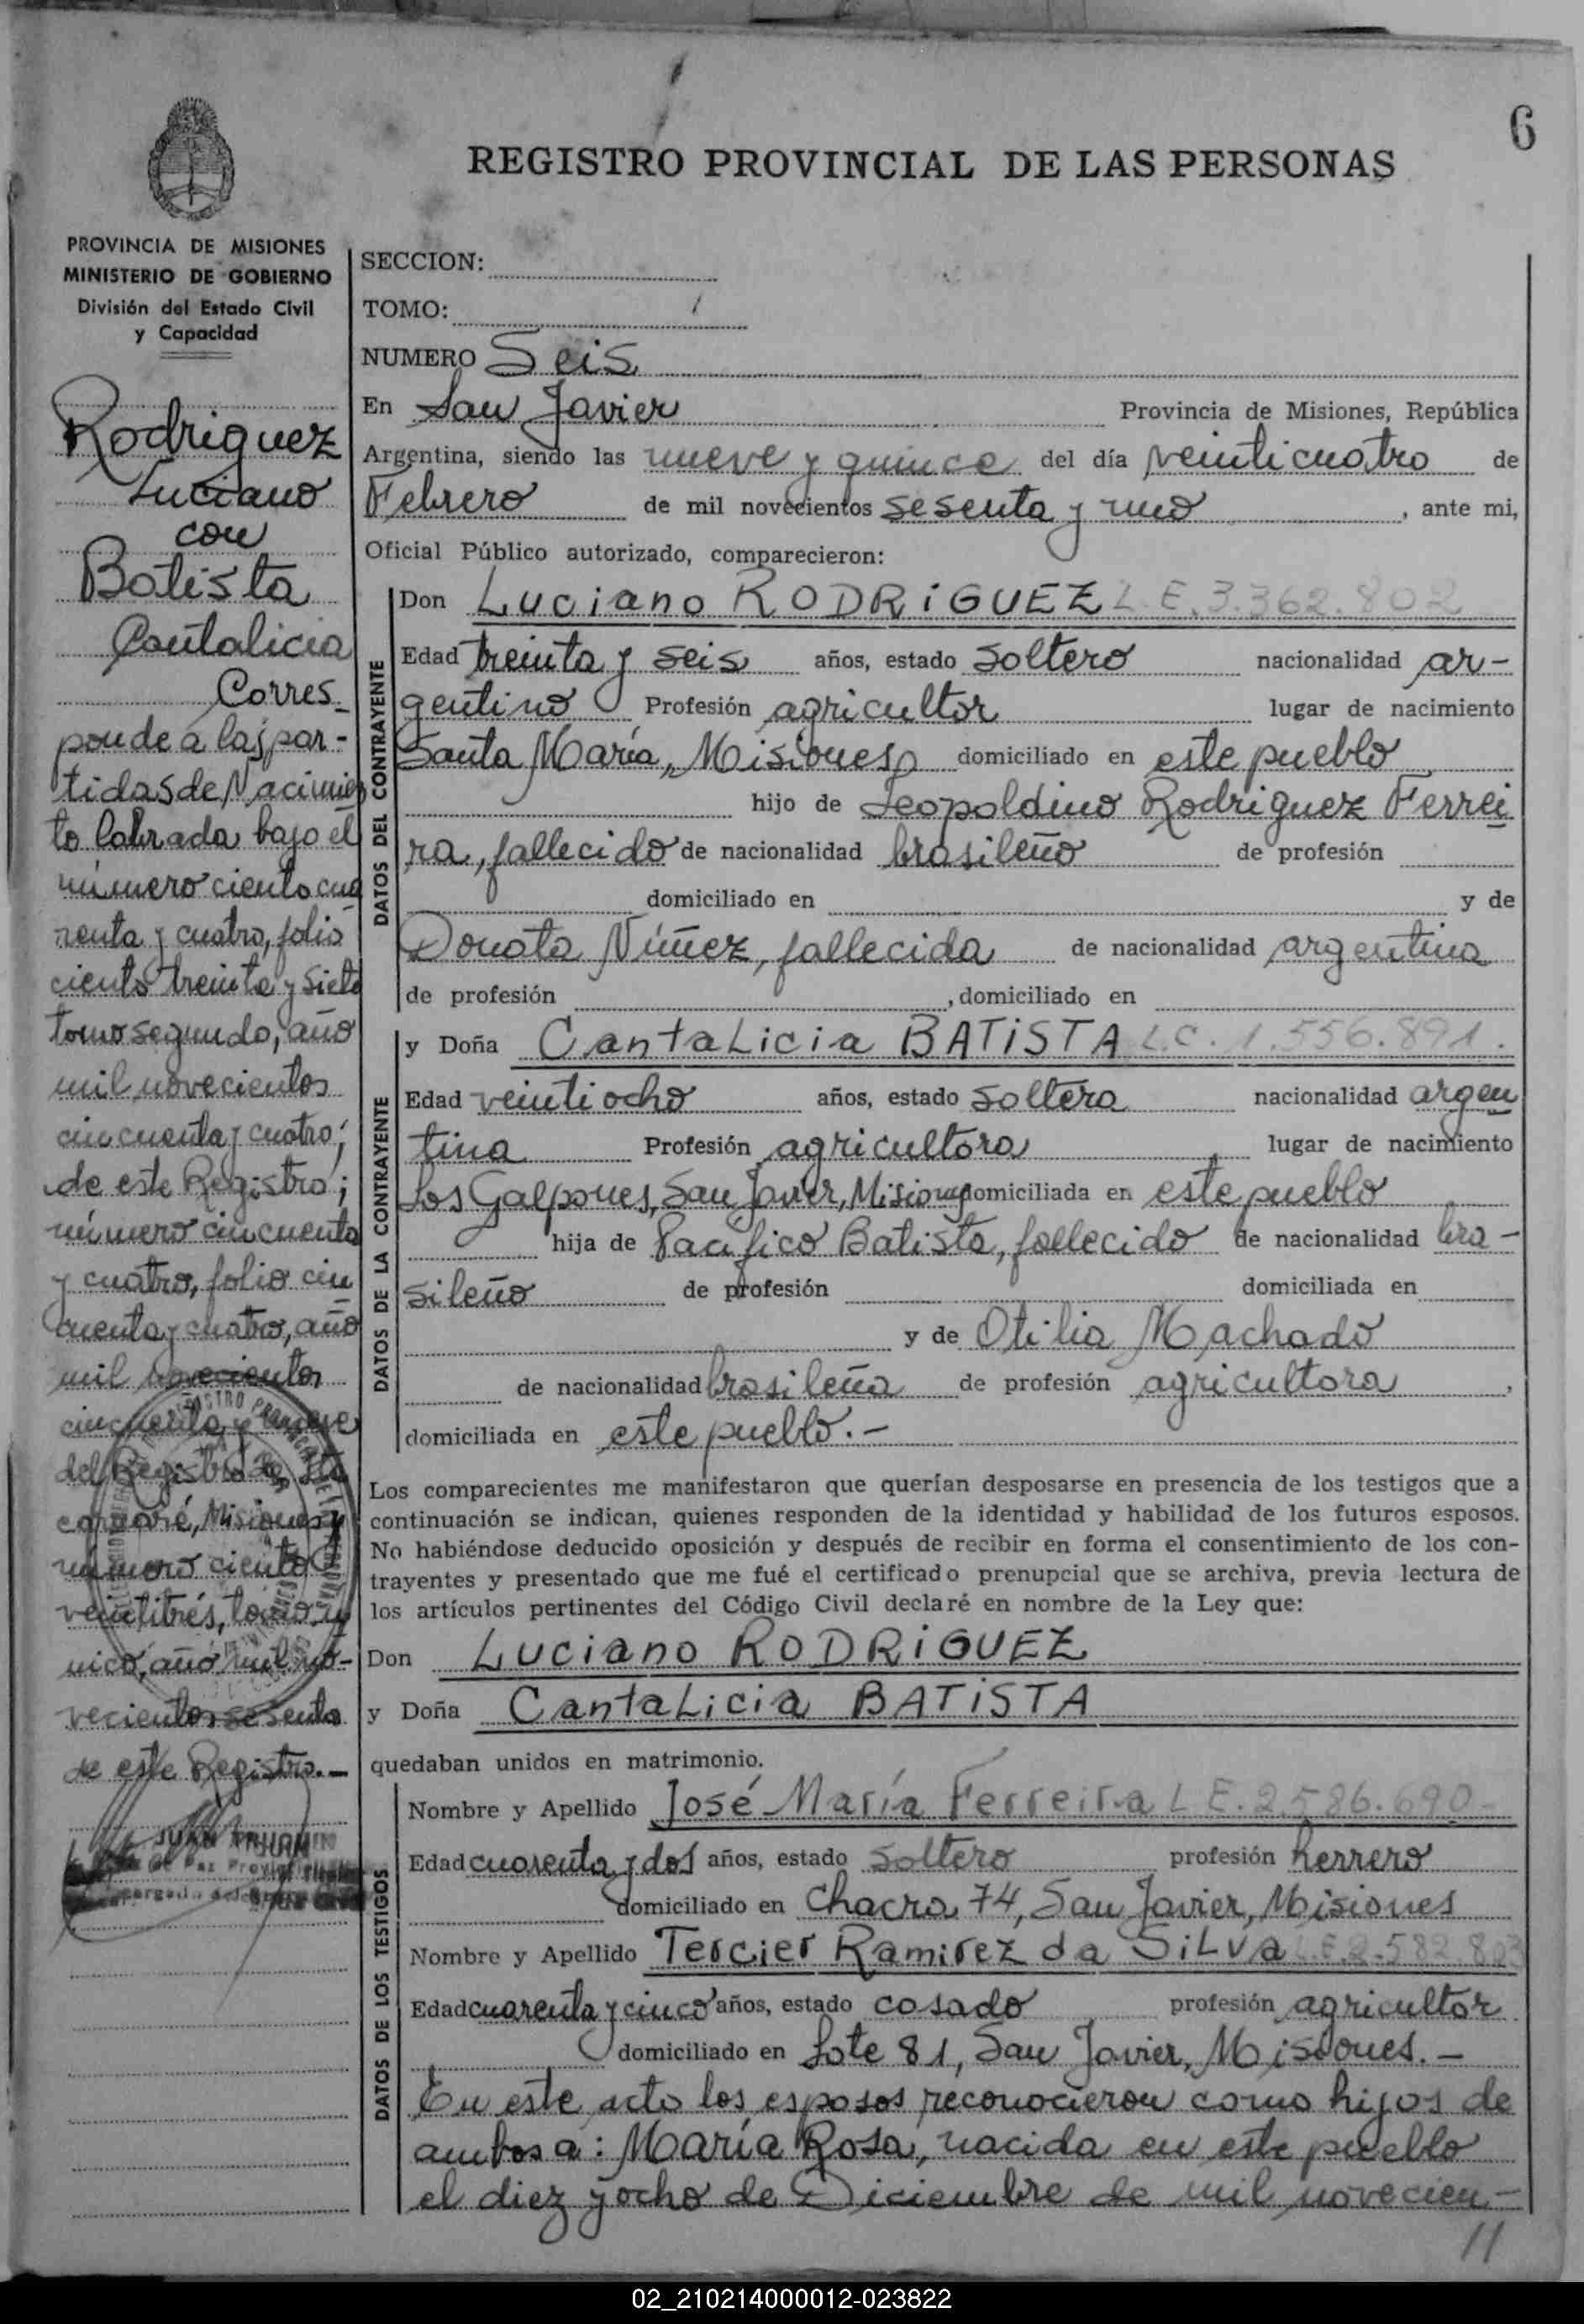 6
REGISTRO PROVINCIAL DE LAS PERSONAS
PROVINCIA DE MISIONES
MINISTERIO DE GOBIERNO
División del Estado Civil
y Capacidad
Rodriguez
Luciano
con
Batista
Cantalicia
Corres-
ponde a las par-
tidas de Nacimien
to labrada bajo el
número ciento cua
renta y cuatro, folio
ciento treinta y siete
tomo segundo, año
mil novecientos
cincuenta y cuatro;
de este Registro;
número cincuenta
y cuatro, folio cin
cuenta y cuatro, año
mil novecientos
cincuenta y nueve
del Registro de
Misiones y
número ciento
veintitrés, tomo ú
nico, año mil no-
vecientos sesenta
de este Registro.-
SECCION:
TOMO:
NUMERO Seis
En San Javier Provincia de Misiones, República
Argentina, siendo las nueve y quince del día veinticuatro de
Febrero de mil novecientos sesenta y uno, ante mi,
Oficial Público autorizado, comparecieron:
DATOS DEL CONTRAYENTE
Don Luciano RODRIGUEZ L.E. 3.362.802
Edad treinta y seis años, estado soltero nacionalidad ar-
gentino Profesión agricultor lugar de nacimiento
Santa María, Misiones domiciliado en este pueblo
hijo de Leopoldino Rodriguez Ferrei
ra, fallecido de nacionalidad brasileño de profesión
domiciliado en y de
Donata Núñez, fallecida de nacionalidad argentina
de profesión , domiciliado en
DATOS DE LA CONTRAYENTE
y Doña Cantalicia BATISTA L.C. 1.556.891.
Edad veintiocho años, estado soltera nacionalidad argen
tina Profesión agricultora lugar de nacimiento
Los Galpones, San Javier, Misiones domiciliada en este pueblo
hija de Pacifico Batista, fallecido de nacionalidad bra-
sileño de profesión domiciliada en
y de Otilia Machado
de nacionalidad brasileña de profesión agricultora ,
domiciliada en este pueblo.-
Los comparecientes me manifestaron que querían desposarse en presencia de los testigos que a
continuación se indican, quienes responden de la identidad y habilidad de los futuros esposos.
No habiéndose deducido oposición y después de recibir en forma el consentimiento de los con-
trayentes y presentado que me fué el certificado prenupcial que se archiva, previa lectura de
los artículos pertinentes del Código Civil declaré en nombre de la Ley que:
Don Luciano RODRIGUEZ
y Doña Cantalicia BATISTA
quedaban unidos en matrimonio.
DATOS DE LOS TESTIGOS
Nombre y Apellido José María Ferreira L.E. 2.586.690-
Edad cuarenta y dos años, estado soltero profesión herrero
domiciliado en Chacra 74, San Javier, Misiones
Nombre y Apellido Tercier Ramirez da SILVA L.E. 2.582.803
Edad cuarenta y cinco años, estado casado profesión agricultor
domiciliado en Lote 81, San Javier, Misiones.-
En este acto los esposos reconocieron como hijos de
ambos a: María Rosa, nacida en este pueblo
el diez y ocho de Diciembre de mil novecien-
11
02_210214000012-023822